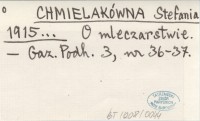 CHMIELAKÓWNA Stefania
1915... O mleczarstwie.
— Gaz. Podh. 3, nr 36-37.